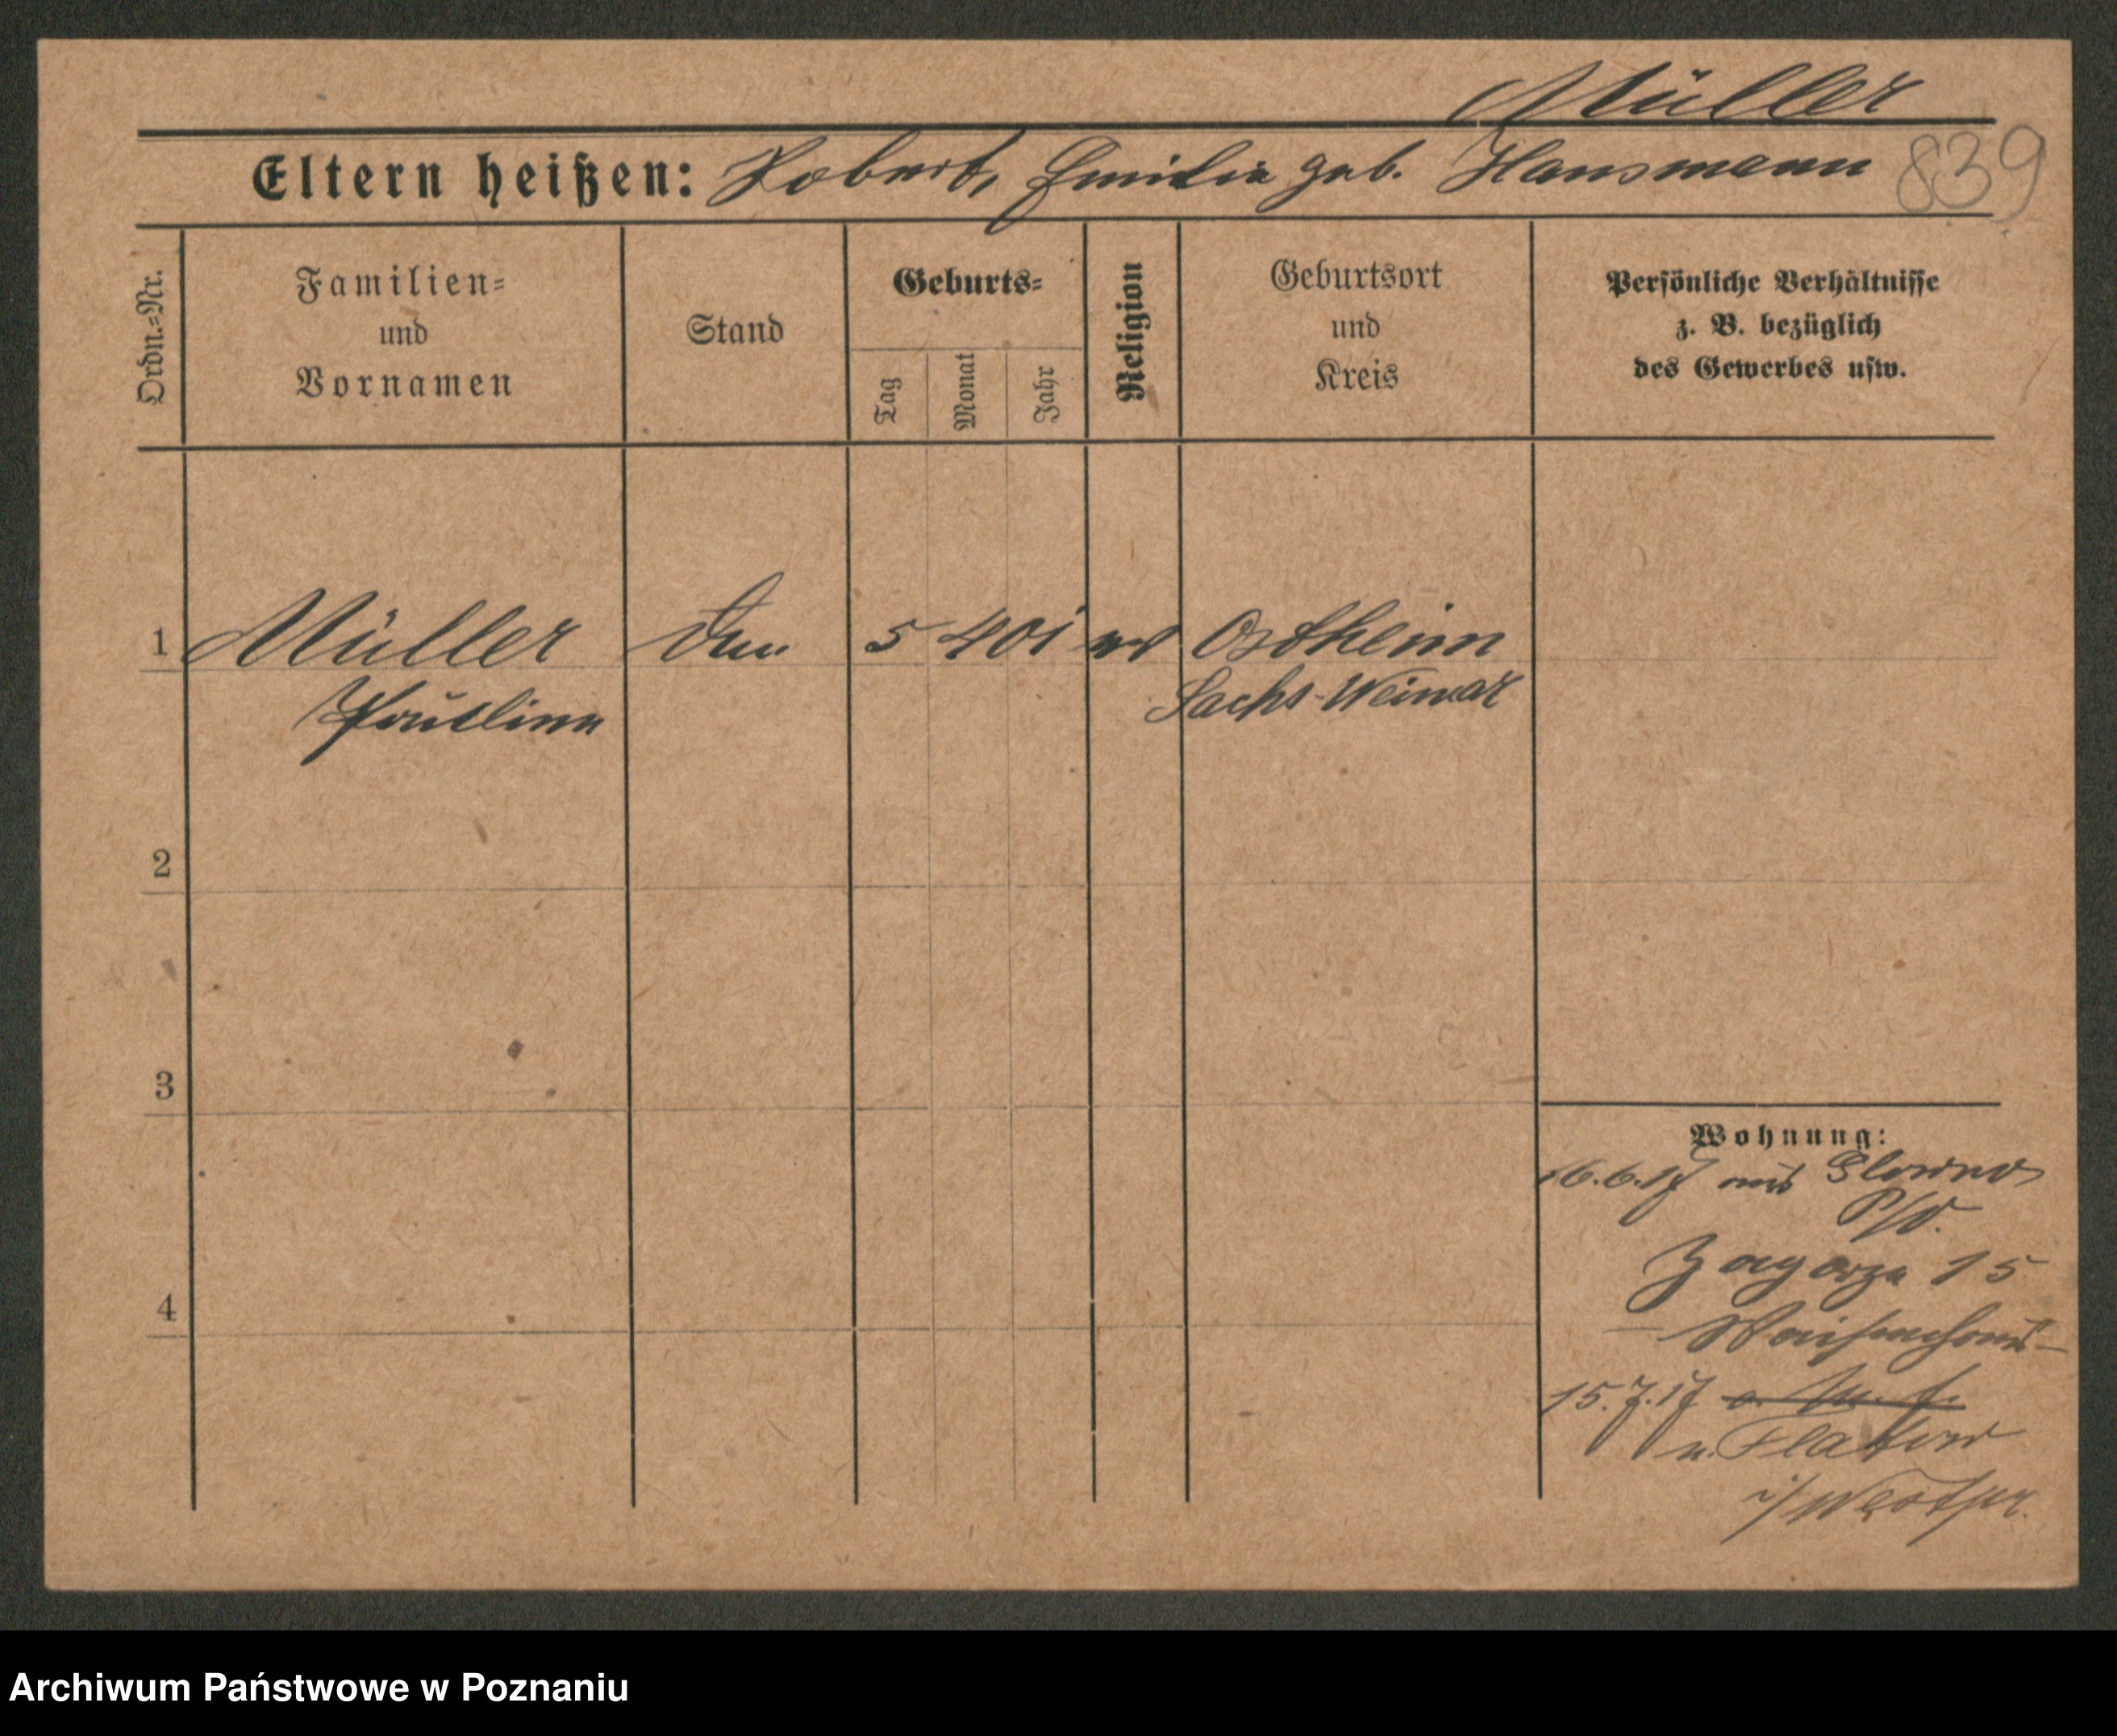 Müller
Eltern heißen: Robert, Emilie geb. Hansmann 839
Ordn.=Nr.
Familien=
und
Vornamen
Stand
Geburts=
Tag
Monat
Jahr
Religion
Geburtsort
und
Kreis
Persönliche Verhältnisse
z. B. bezüglich
des Gewerbes usw.
1 Müller 5 4 01 Ostheim
Pauline Sachs-Weimar
2
3
4
Wohnung:
16.6.17 aus Glowno
P/O.
Zagorze 15
Waisenhaus
15.7.17
n. Flatow
i/Westpr.
Archiwum Państwowe w Poznaniu